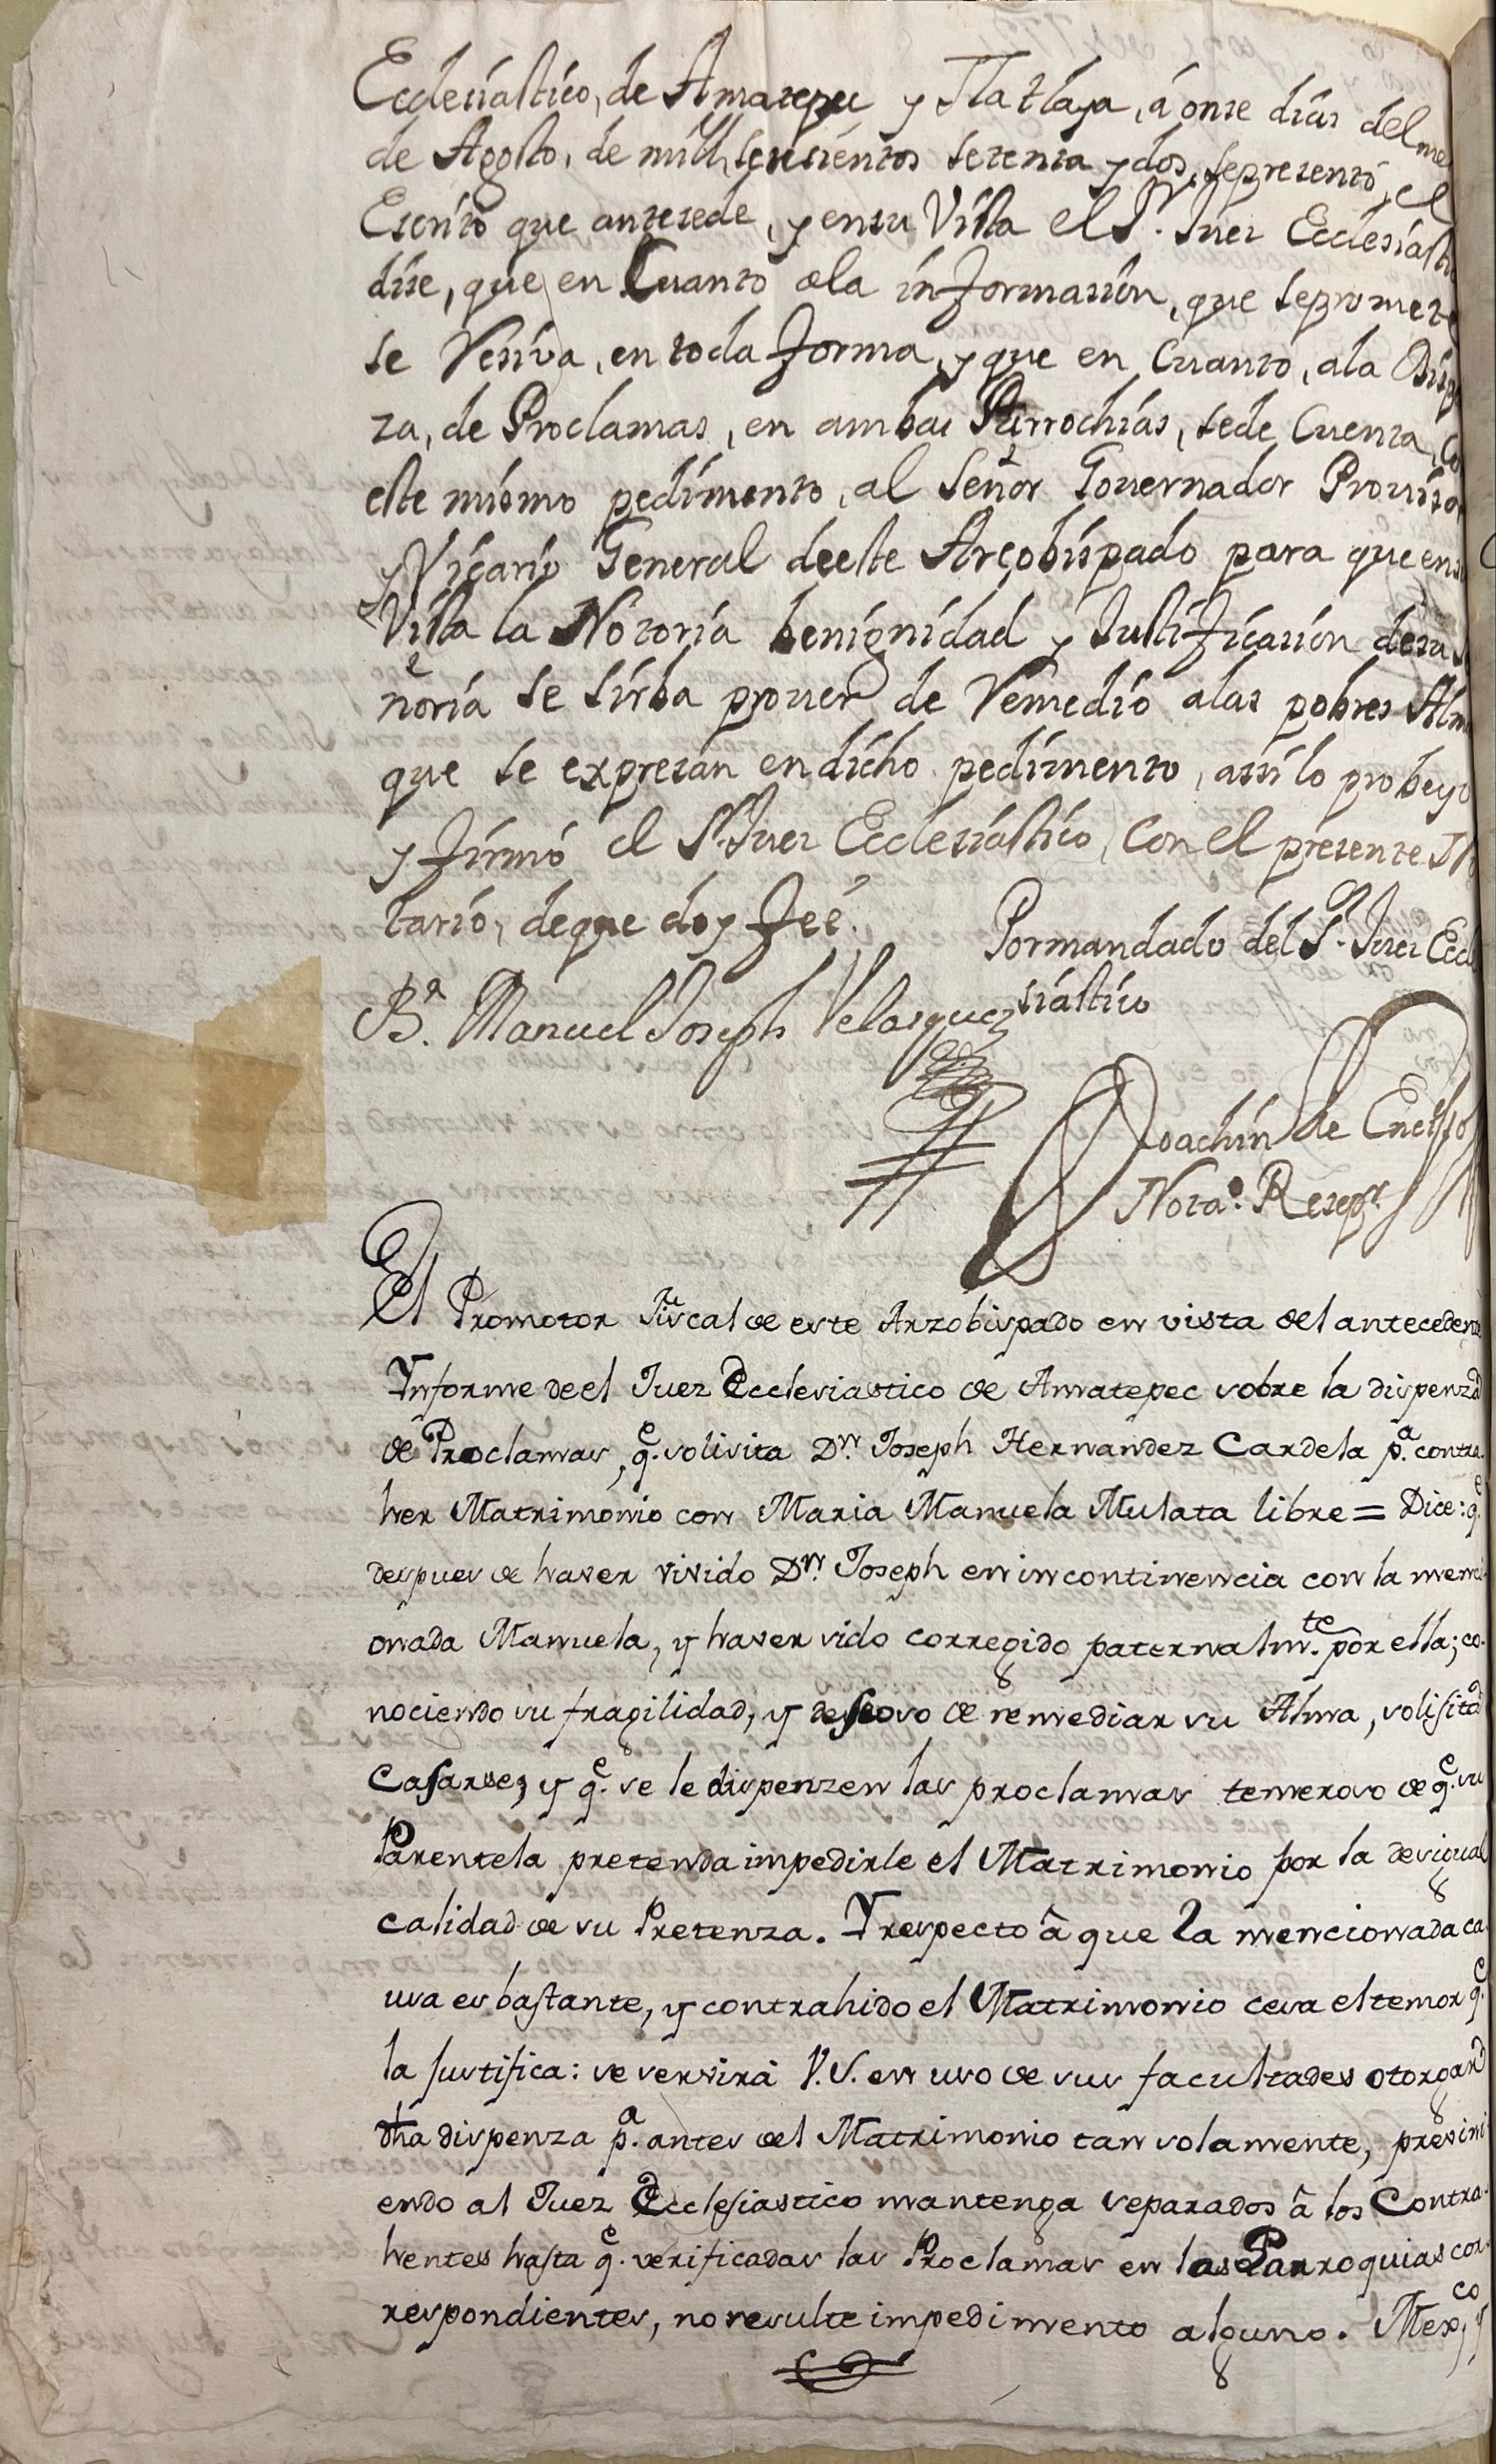 Ecclesiastico, de Amatepec y Tlatlaya, á onse dias del me
de Agosto, de mill, setesientos setenta y dos, sepresentó, el
Escrito que antesede, y ensu Vista el Sr. Juez Ecclesiasti
dise, que en Cuanto ala informasion, que sepromete
se Resiva, en toda forma, y que en Cuanto, ala Disp
za, de Proclamas, en ambas Parrochias, sede Cuenta, co
este mismo pedimento, al Señor Governador Provisor
y Vicario General deeste Arçobispado para que ensu
Vista la Notoria benignidad y Justificasion desu S
ñoria se sirba prover de Remedio alas pobres Alm
que se expresan en dicho pedimento, assi lo probeyo
y firmó el Sr. Juez Ecclesiastico, con el presente No
tario, deque doy feé.
Pormandado del Sr. Juez Eccl
siastico
Br. Manuel Joseph Velasquez
Joachin de Enciso
Nota.o Resepr.
El Promotor Fiscal de este Arzobispado en vista del antecedente
Ynforme deel Juez Ecclesiastico de Amatepec sobre la dispenza
de Proclamas, q.e solisita Dn. Joseph Hernandez Cardela p.a contra-
her Matrimonio con Maria Manuela Mulata libre = Dice: q.e
despues de haver vivido Dn. Joseph en incontinencia con la menci-
onada Manuela, y haver sido corregido paternalm.te por ella; co-
nociendo su fragilidad, y deseoso de remediar su Alma, solisita
Casarse, y q.e se le dispenzen las proclamas temeroso de q.e su
Parentela pretenda impedirle el Matrimonio por la desigual
calidad de su Pretenza. Y respecto â que la mencionada ca
usa es bastante, y contrahido el Matrimonio cesa el temor q.e
la justifica: se servirá V.S. en uso de sus facultades otorgar
dha dispenza p.a antes del Matrimonio tan solamente, previni
endo al Juez Ecclesiastico mantenga separados â los Contra-
hentes hasta q.e verificadas las Proclamas en las Parroquias cor-
respondientes, no resulte impedimento alguno. Mex.co y